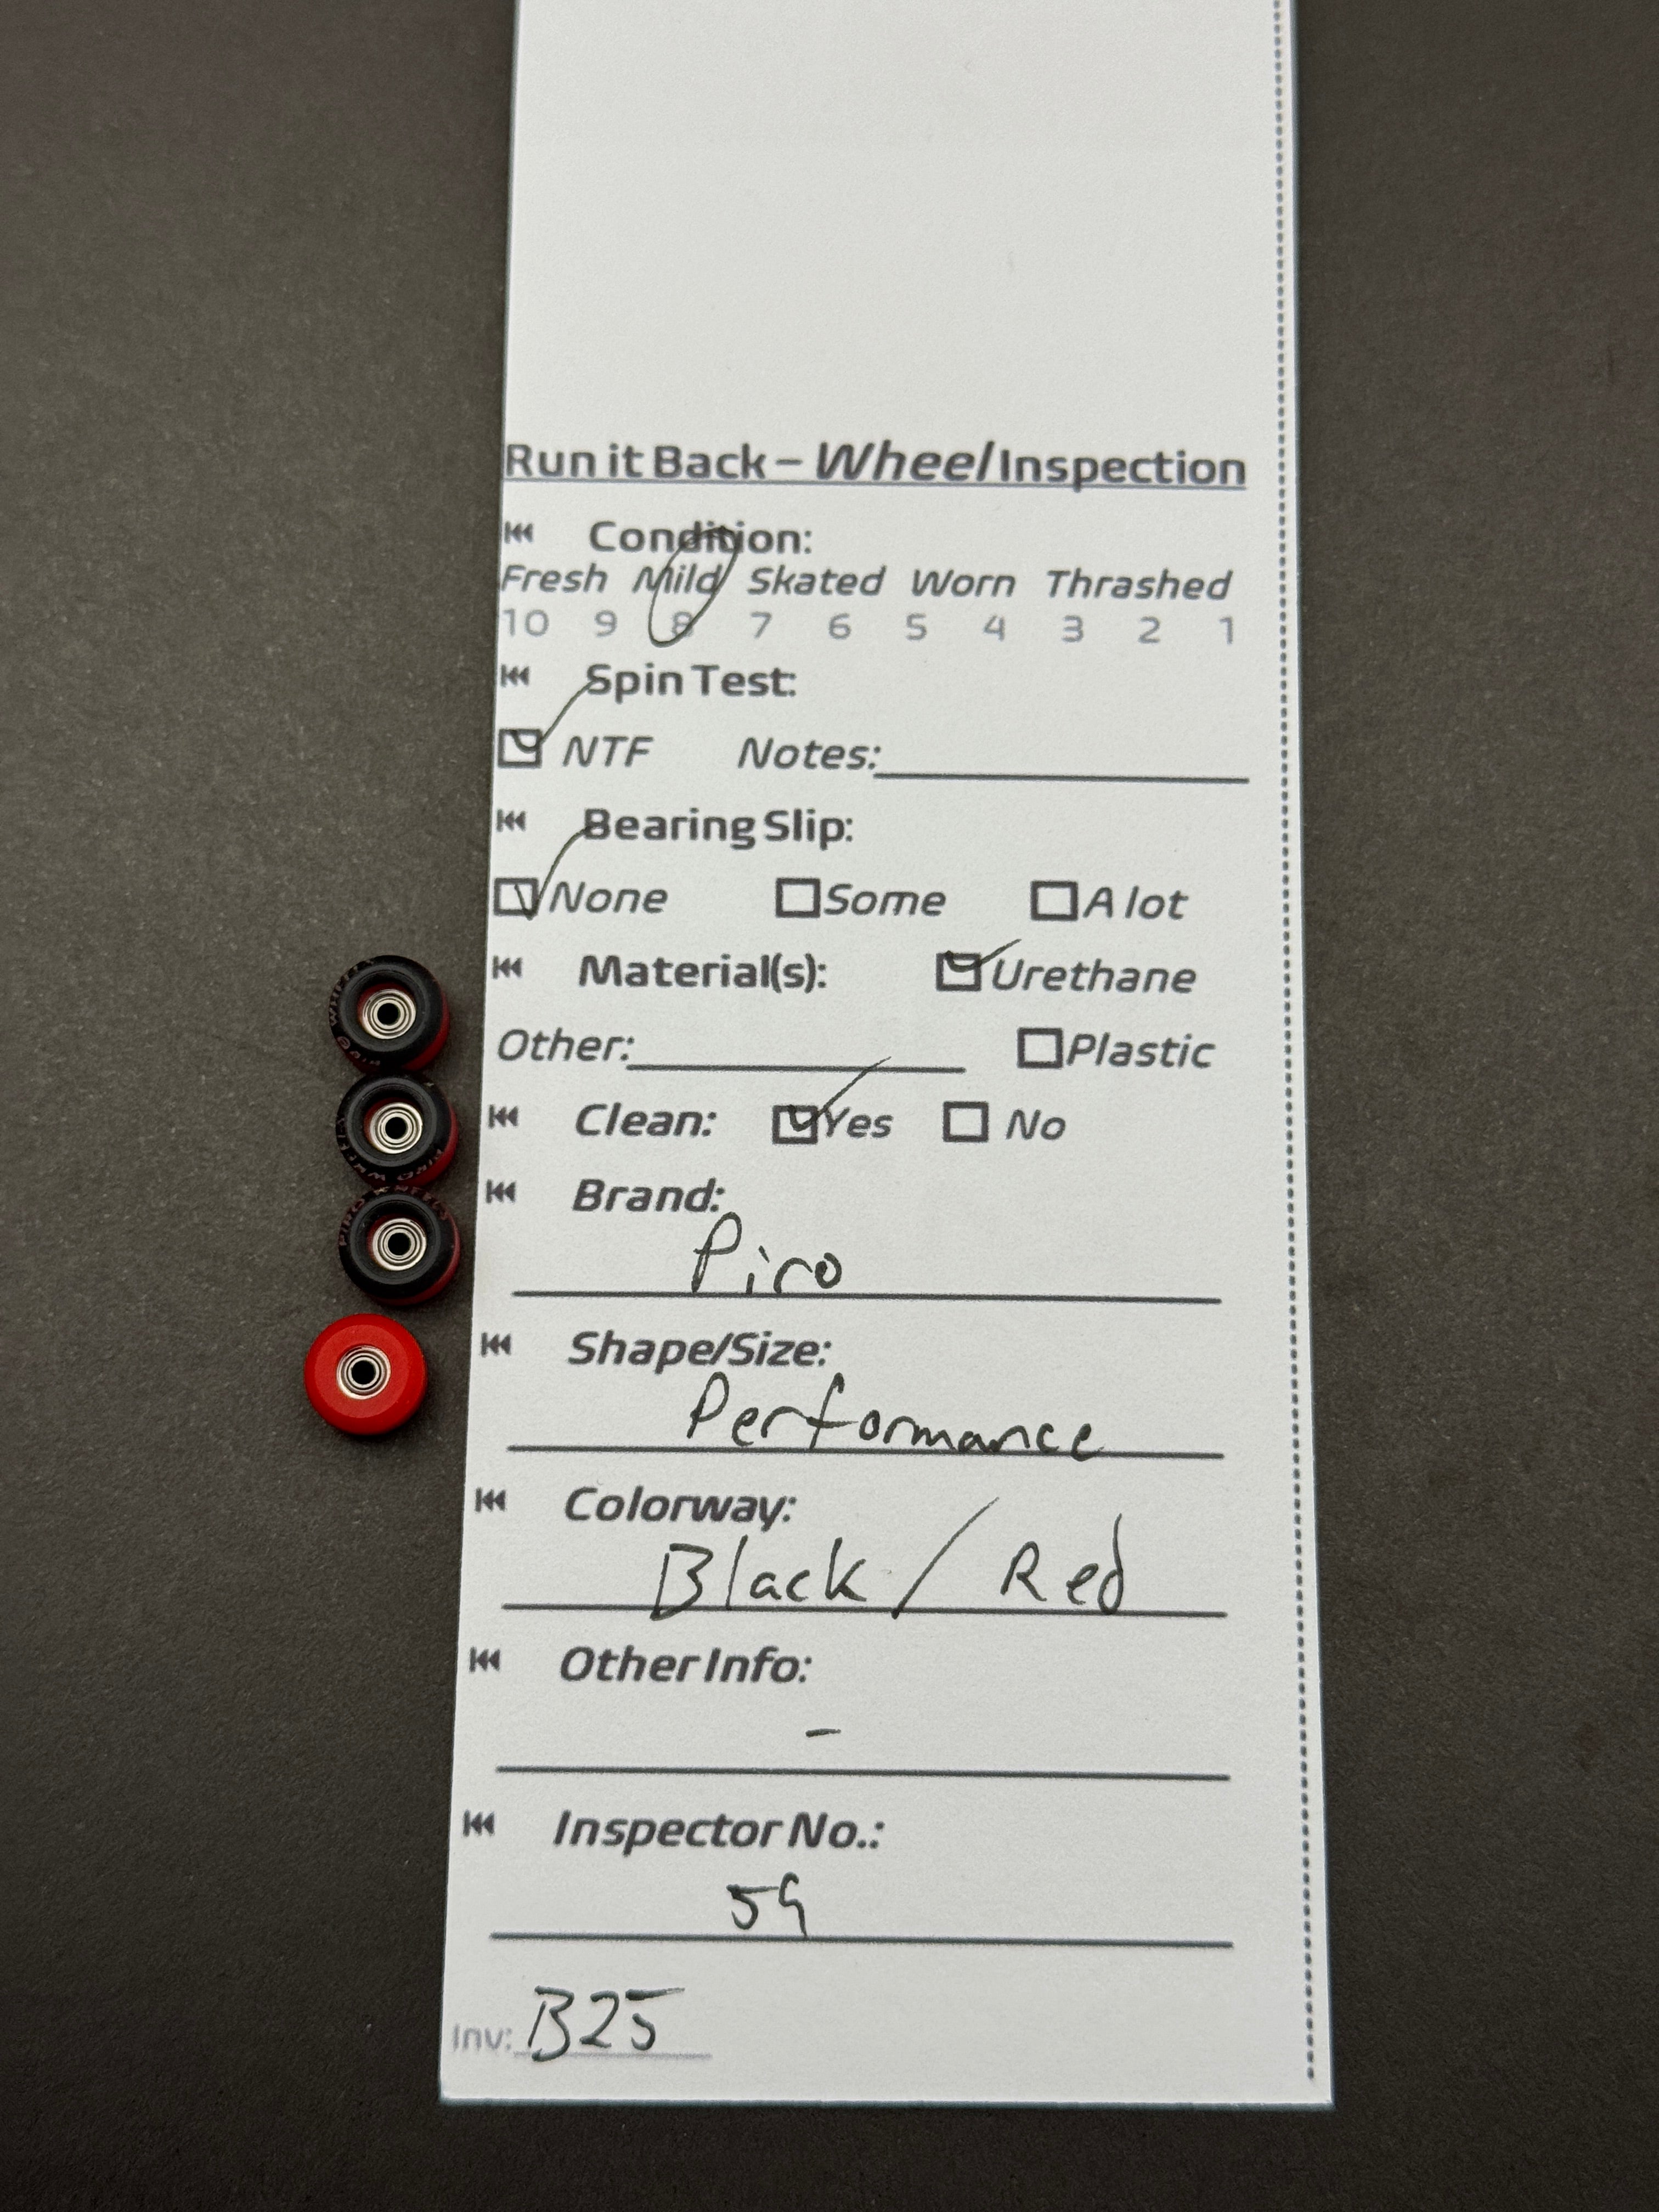 Run it Back – Wheel Inspection
Condition:
Fresh Mild Skated Worn Thrashed
10 9 8 7 6 5 4 3 2 1
Spin Test:
NTF Notes:
Bearing Slip:
None Some A lot
Material(s): Urethane
Other: Plastic
Clean: Yes No
Brand:
Piro
Shape/Size:
Performance
Colorway:
Black / Red
Other Info:
-
Inspector No.:
59
Inv: B25
WHEELS
PIRO WHEELS
PIRO WHEELS